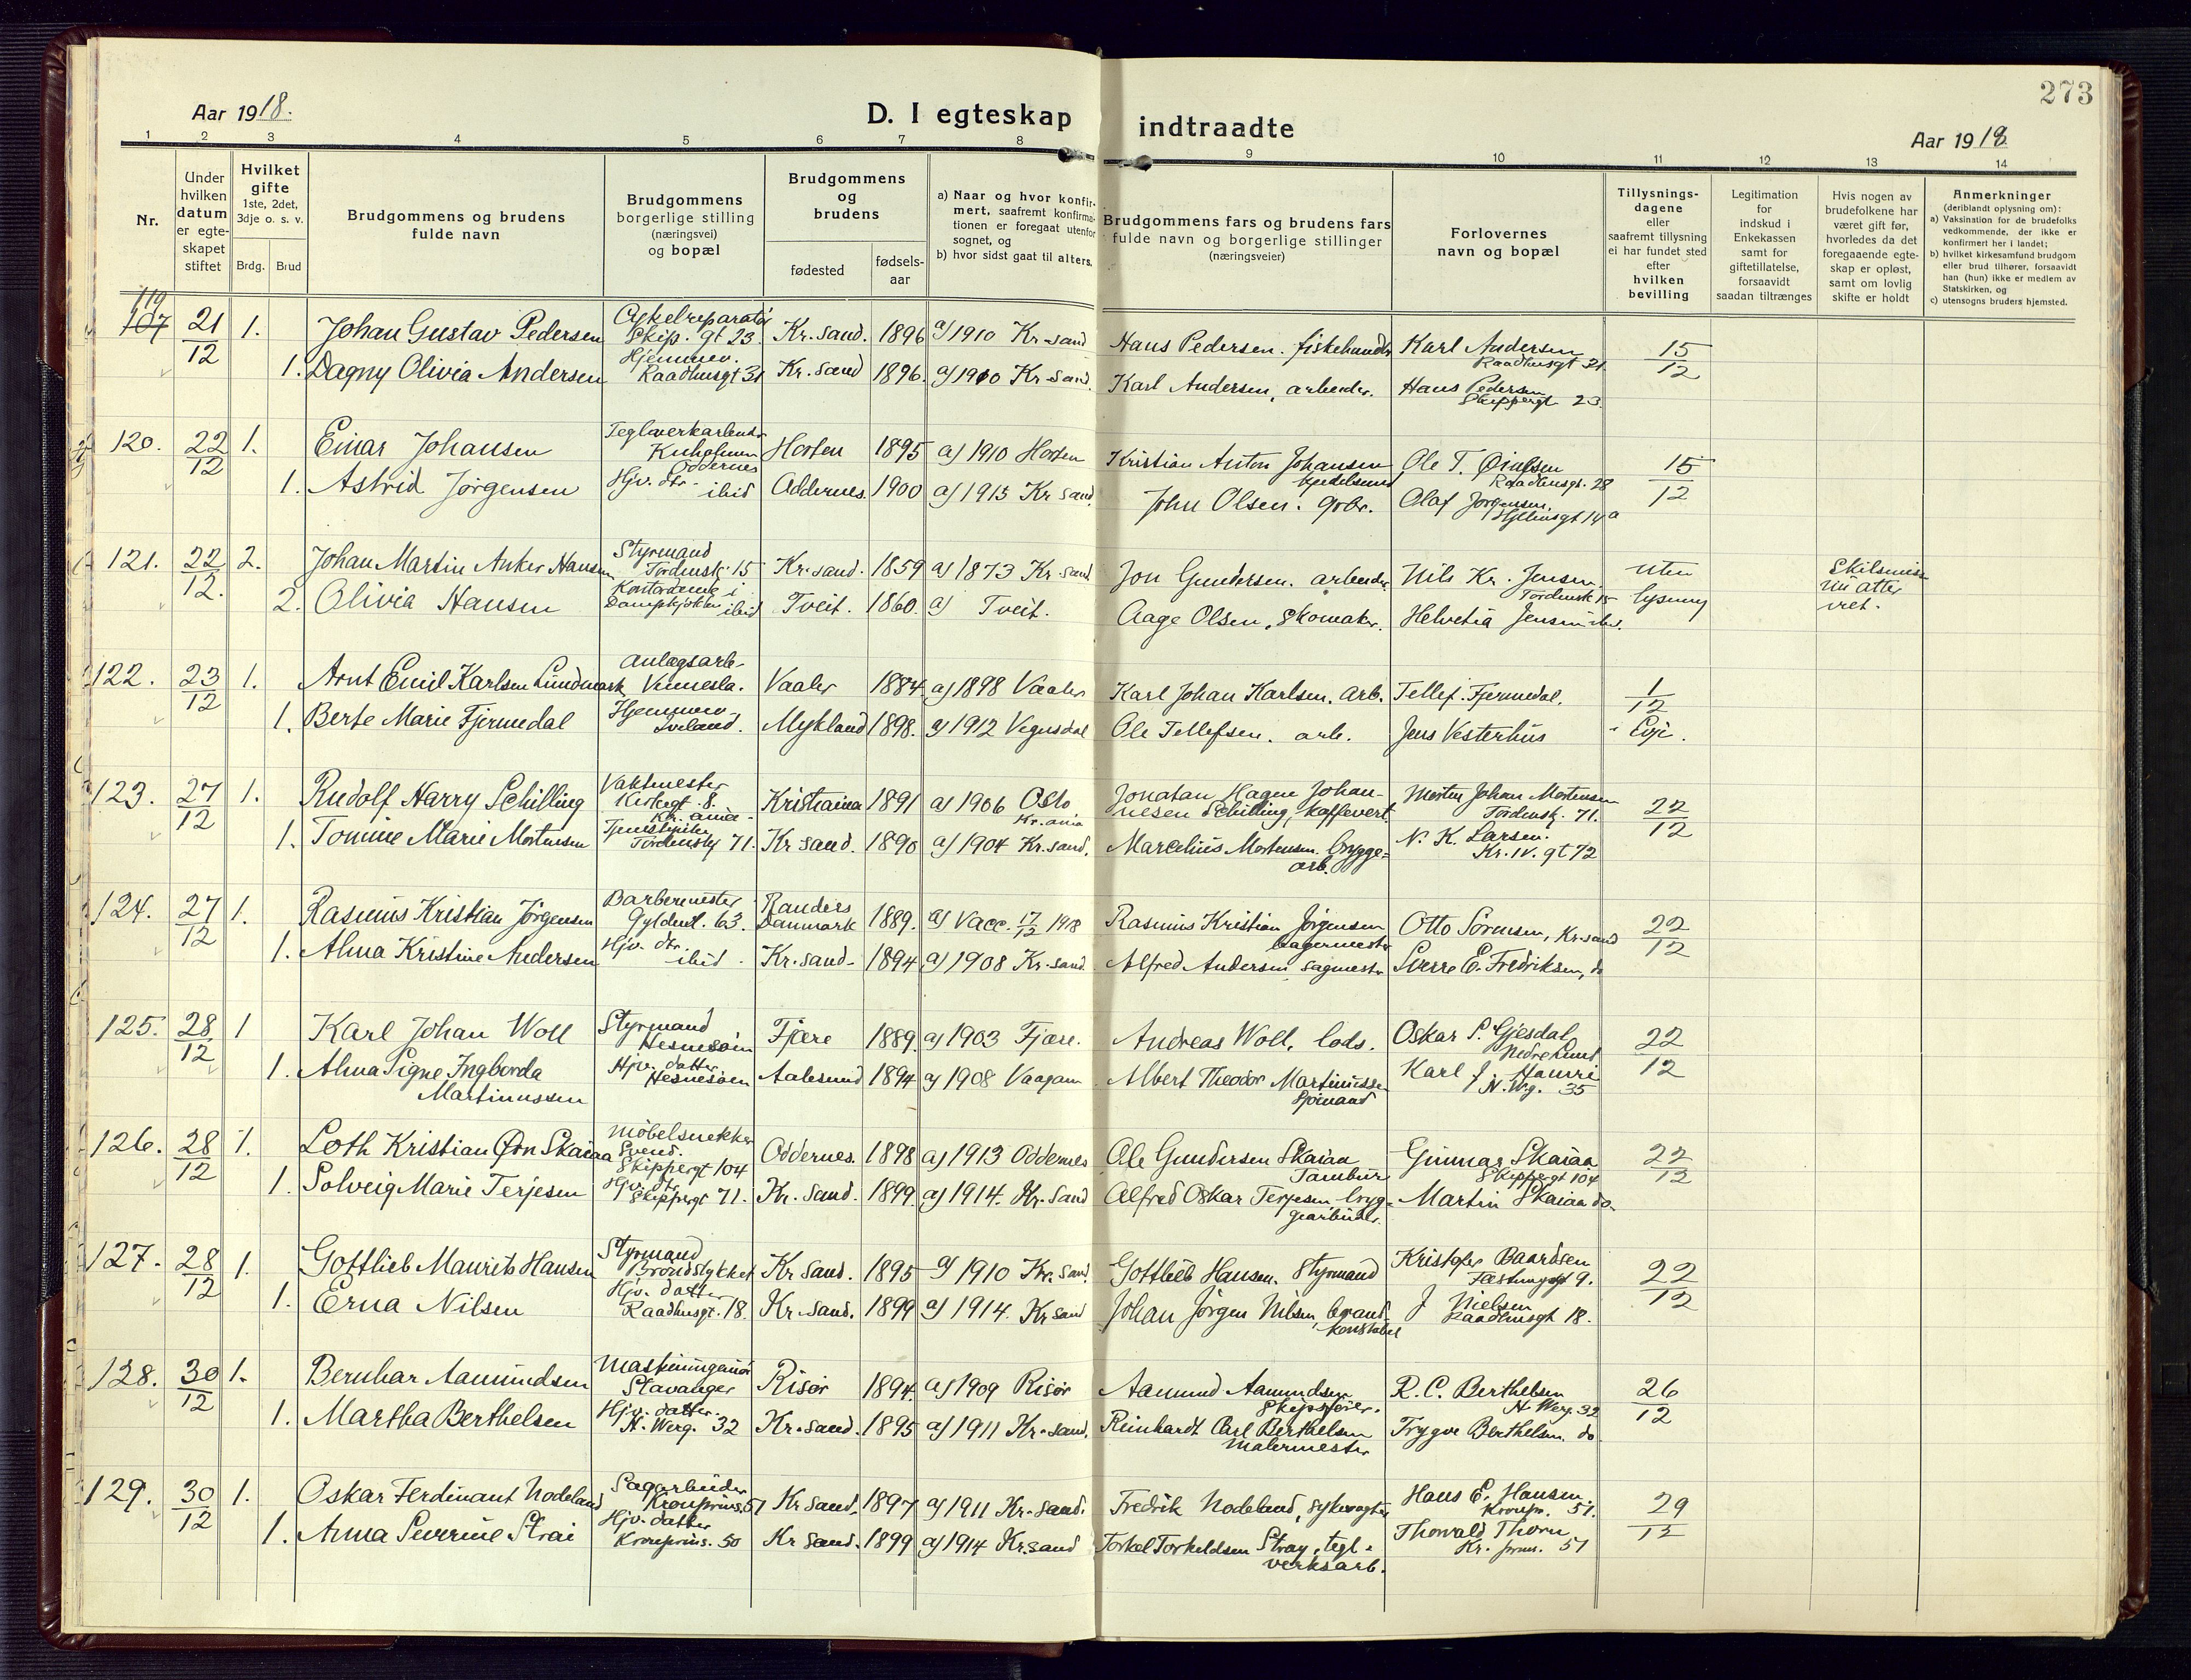 273
Aar 1918.
D. I egteskap indtraadte
Aar 1918
1 2 3 4 5 6 7 8 9 10 11 12 13 14
Nr.
Under hvilken datum er egteskapet stiftet
Hvilket gifte 1ste, 2det, 3dje o. s. v.
Brdg. Brud
Brudgommens og brudens fulde navn
Brudgommens borgerlige stilling (næringsvei) og bopæl
Brudgommens og brudens
fødested
fødselsaar
a) Naar og hvor konfirmert, saafremt konfirmationen er foregaat utenfor sognet, og
b) hvor sidst gaat til alters.
Brudgommens fars og brudens fars fulde navn og borgerlige stillinger (næringsveier)
Forlovernes navn og bopæl
Tillysningsdagene eller saafremt tillysning ei har fundet sted efter hvilken bevilling
Legitimation for indskud i Enkekassen samt for giftetillatelse, forsaavidt saadan tiltrænges
Hvis nogen av brudefolkene har været gift før, hvorledes da det foregaaende egteskap er opløst, samt om lovlig skifte er holdt
Anmerkninger (deriblandt oplysning om):
a) Vaksination for de brudefolks vedkommende, der ikke er konfirmert her i landet;
b) hvilket kirkesamfund brudgom eller brud tilhører, forsaavidt han (hun) ikke er medlem av Statskirken, og
c) utensogns bruders hjemsted.
119
107 21/12 1. Johan Gustav Pedersen Cykelreparatør Skip. gt 23. Kr. sand. 1896 a) 1910 Kr-sand Hans Pedersen. fiskehandler Karl Andersen Raadhusgt 31. 15/12
1. Dagny Olivia Andersen Hjemmev. Raadhusgt 31 Kr. sand 1896. a) 1910 Kr-sand. Karl Andersen, arbeider. Hans Pedersen Skippergt 23.
120. 22/12 1. Einar Johansen Teglverkarbeider Kuholmen Oddernes Horten 1895 a) 1910 Horten Kristian Anton Johansen Ole T. Raadhusgt. 28 15/12
1. Astrid Jørgensen Hjv. dtr. ibid Oddernes. 1900 a) 1915 Kr sand. John Olsen. grbr. Olaf Jørgensen. 14 a
121. 22/12. 2. Johan Martin Anker Hansen Styrmand Tordensk. 15 Kr. sand. 1859 a) 1873 Kr. sand Jon Gundersen. arbeider. Nils Kr. Jensen. Tordensk 15 uten lysning Skilsmisse
2. Olivia Hansen i Dampkjøkken ibid Tveit. 1860. a) Tveit. Aage Olsen, skomaker. Helvetia Jensen ibd.
122. 23/12 1. Arnt Emil Karlsen Lundmark Anlægsarb. Vennesla. Vaaler 1884 a) 1898 Vaaler Karl Johan Karlsen. arb. Tellef. Fjermedal. 1/12 i Evje.
1. Berte Marie Fjermedal Hjemmev. Iveland. Mykland 1898. a) 1912 Vegusdal Ole Tellefsen. arb. Jens Vesterhus
123. 27/12 1. Rudolf Harry Schilling Vaktmester Kirkegt. 8. Kr. ania Kristiania 1891 a) 1906 Oslo Kr. ania Jonatan Hagne Johannesen Schilling, kaffevert. Morten Johan Mortensen Tordensk. 71. 22/12
1. Tomine Marie Mortensen Tjenestepike Tordensg 71. Kr sand. 1890 a) 1904 Kr. sand. Marcelius Mortensen. bryggearb. N. K. Larsen. Kr. IV. gt 72
124. 27/12 1. Rasmus Kristian Jørgensen Barbermester Gyldenl. 63. Randers Danmark 1889. a) Vacc. 17/12 1918 Rasmus Kristian Jørgensen bagermester Otto Sørensen, Kr-sand 22/12
1. Alma Kristine Andersen Hjv. dtr. ibid. Kr. sand- 1894 a) 1908 Kr. sand. Alfred Andersen sagmestr Sverre E. Fredriksen, do
125. 28/12 1 Karl Johan Woll Styrmand Hesnesøin Fjære 1889. a) 1903 Fjære. Andreas Woll, lods. Oskar S. Gjesdal Nedre Lund 22/12
1. Alma Signe Ingborda Martinussen Hjv. datter Hesnesøen Aalesund 1894 a) 1908 Vaagan Albert Theodor Martinussen Sjømand Karl J. H. Wrg. 35
126. 28/12 1. Loth Kristian Ørn Skaiaa Møbelsnekker Svend. Skippergt 104 Oddernes. 1898 a) 1913 Oddernes Ole Gundersen Skaiaa Tambur Gunnar Skaiaa Skippergt 104 22/12
1. Solveig Marie Terjesen Hjv. dtr. Skippergt 71. Kr. sand. 1899 a) 1914. Kr. Sand Alfred Oskar Terjesen bryggearbeider. Martin Skaiaa do.
127. 28/12 1. Gottlieb Maurits Hansen Styrmand Brøndstykket Kr. sand. 1895 a) 1910 Kr. sand. Gottlieb Hansen. Styrmand Kristofer Baardsen Festningsgt 9. 22/12
1. Erna Nilsen Hjv. datter Raadhusgt. 18. Kr. sand. 1899 a) 1914. Kr sand Johan Jørgen Nilsen, brandkonstabel J Nielsen Raadhusgt 18.
128. 30/12 1. Bernhar Aamundsen Maskiningeniør Stavanger Risør 1894. a) 1909 Risør Aamund Aamundsen Skipsfører. R. C. Berthelsen H. Werg. 32 26/12
1. Martha Berthelsen Hjv. datter. H. Werg. 32 Kr. sand. 1895 a) 1911 Kr. sand. Reinhardt Carl Berthelsen malermester Trygve Berthelsen. do
129. 30/12 1. Oskar Ferdinant Nodeland Sagarbeider Kronprins. 51 Kr sand. 1897 a) 1911 Kr. sand. Fredrik Nodeland, sykevogter Hans E. Hansen. Kronpr. 51. 29/12
1. Anna Severine Strai Hjv. datter Kronprins. 50 Kr sand. 1899 a) 1914 Kr. sand Torkel Torkeldsen Stray, teglverksarb. Thorvald Thorn Kr. prins. 51